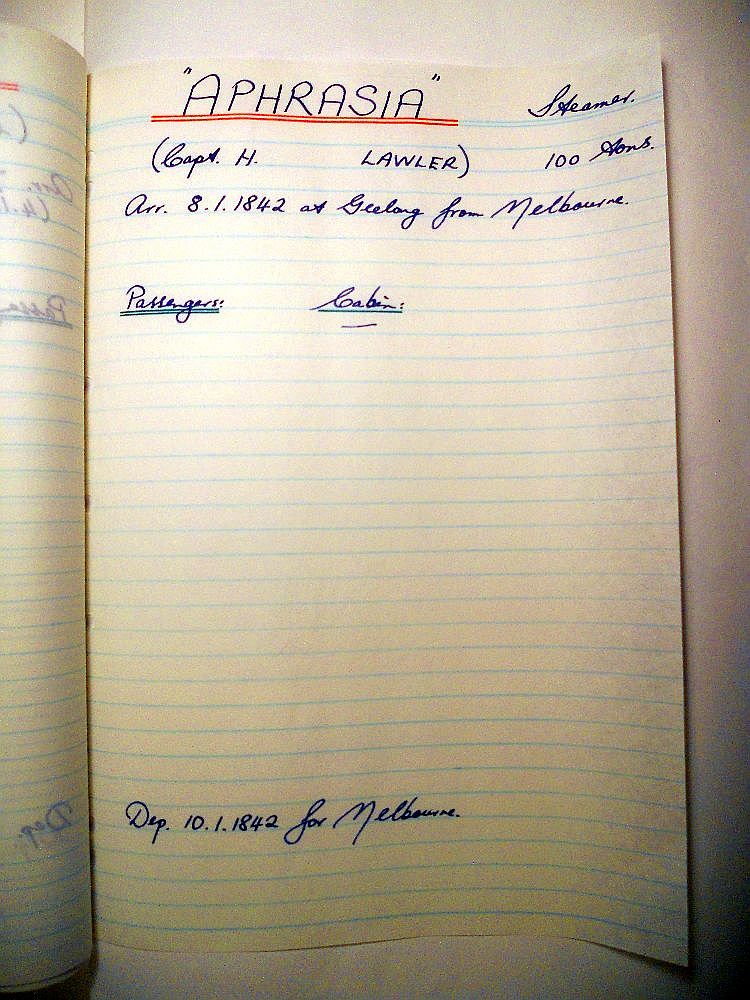 "APHRASIA" Steamer.
(Capt. H. LAWLER) 100 tons.
Arr. 8.1.1842 at Geelong from Melbourne.
Passengers: Cabin:
Dep. 10.1.1842 for Melbourne.